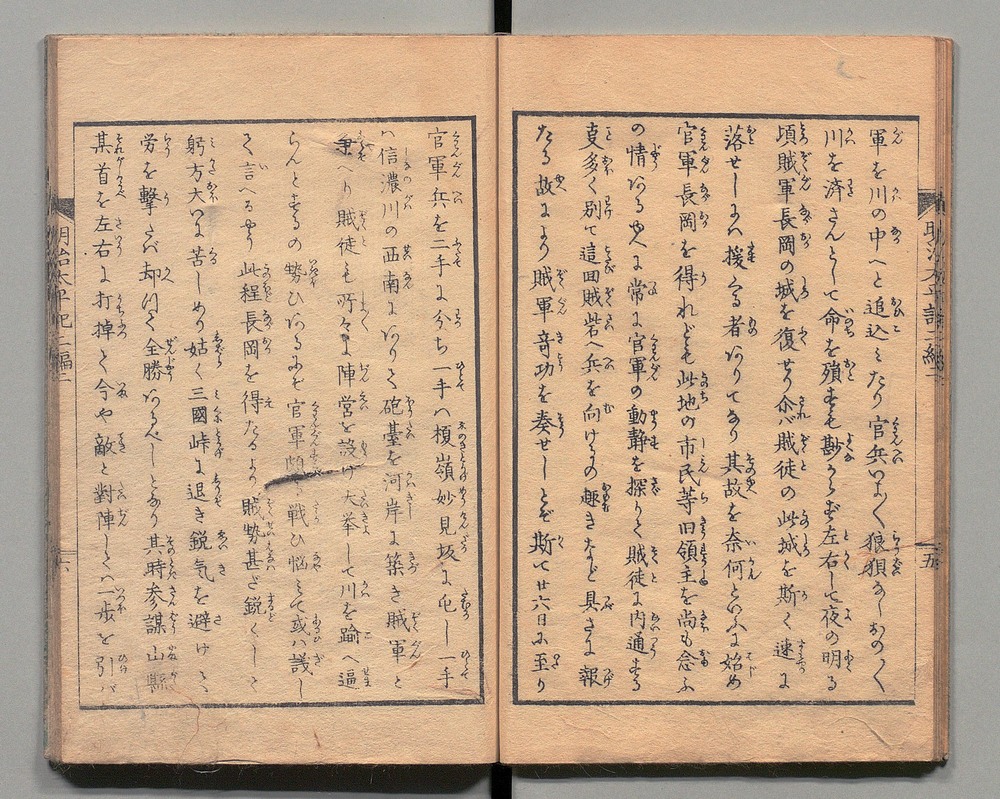 軍を川の中へと追込ミたり官兵いよく狼狽なしおのく
川を済さんとして命を殞すも尠からず左右して夜の明る
頃賊軍長岡の城を復せり余ハ賊徒の此城を斯く速に
落せしにハ援る者ありてなり其故を奈何といふに始め
官軍長岡を得れども此地の市民等旧領主を尚も念ふ
の情あるゆへに常に官軍の動静を探りて賊徒に内通する
支多く別て這回賊砦へ兵を向けるの趣きなど具さに報
たる故により賊軍奇功を奏せしとぞ斯て廿六日に至り
官軍兵を二手に分ち一手ハ榎嶺妙見坂に屯し一手
ハ信濃川の西南にありて砲臺を河岸に築き賊軍と
賊徒も所々に陣営を設け大挙して川を踰へ逼
らんとするの勢ひあるにぞ官軍頗る戦ひ悩ミて或ハ議し
て言へるやう此程長岡を得たるより賊勢甚だ鋭くして
躬方大いに苦しめり姑く三國峠に退き鋭気を避けて
労を撃たバ却ツて全勝あるべしとあり其時参謀山縣
某首を左右に打掉て今や敵と對陣して一歩を引バ
明治太平記二編二
五
明治太平記二編二
六